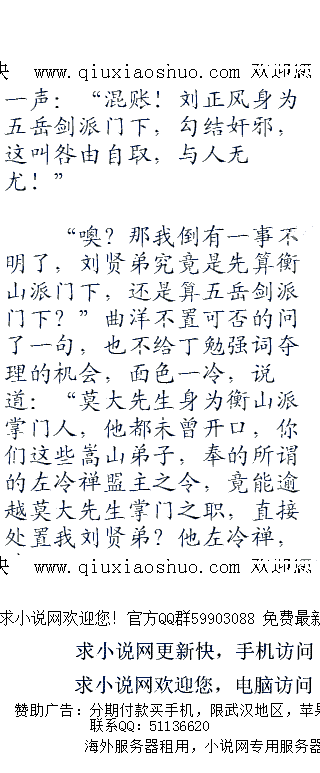 快 www.qiuxiaoshuo.com 欢迎您
一声：“混账！刘正风身为
五岳剑派门下，勾结奸邪，
这叫咎由自取，与人无
尤！”
“噢？那我倒有一事不
明了，刘贤弟究竟是先算衡
山派门下，还是算五岳剑派
门下？”曲洋不置可否的问
了一句，也不给丁勉强词夺
理的机会，面色一冷，说
道：“莫大先生身为衡山派
掌门人，他都未曾开口，你
们这些嵩山弟子，奉的所谓
的左冷禅盟主之令，竟能逾
越莫大先生掌门之职，直接
处置我刘贤弟？他左冷禅，
快 www.qiuxiaoshuo.com 欢迎您
求小说网欢迎您！官方QQ群59903088 免费最新
求小说网更新快，手机访问
求小说网欢迎您，电脑访问
赞助广告：分期付款买手机，限武汉地区，苹果
联系QQ：51136620
海外服务器租用，小说网专用服务器